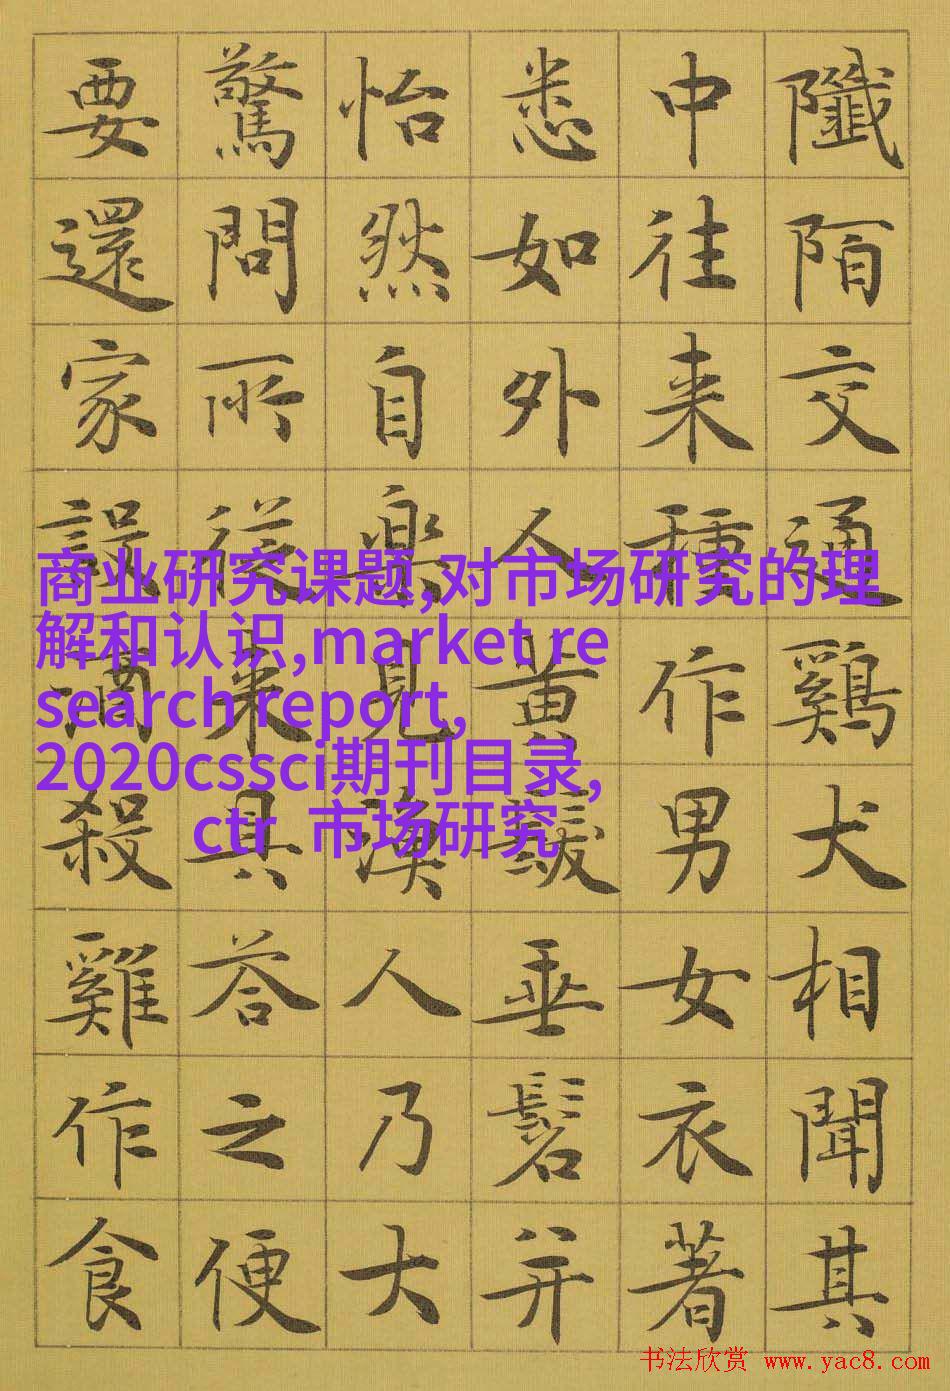 陌交通鷄犬相聞其
中往来種作男女衣著
悉如外人黄髮垂髫并
怡然自樂見漁人乃大
驚問所從来具荅之便
要還家設酒殺雞作食
商业研究课题,对市场研究的理
解和认识,market re
search report,
2020cssci期刊目录,
ctr 市场研究
书法欣赏 www.yac8.com